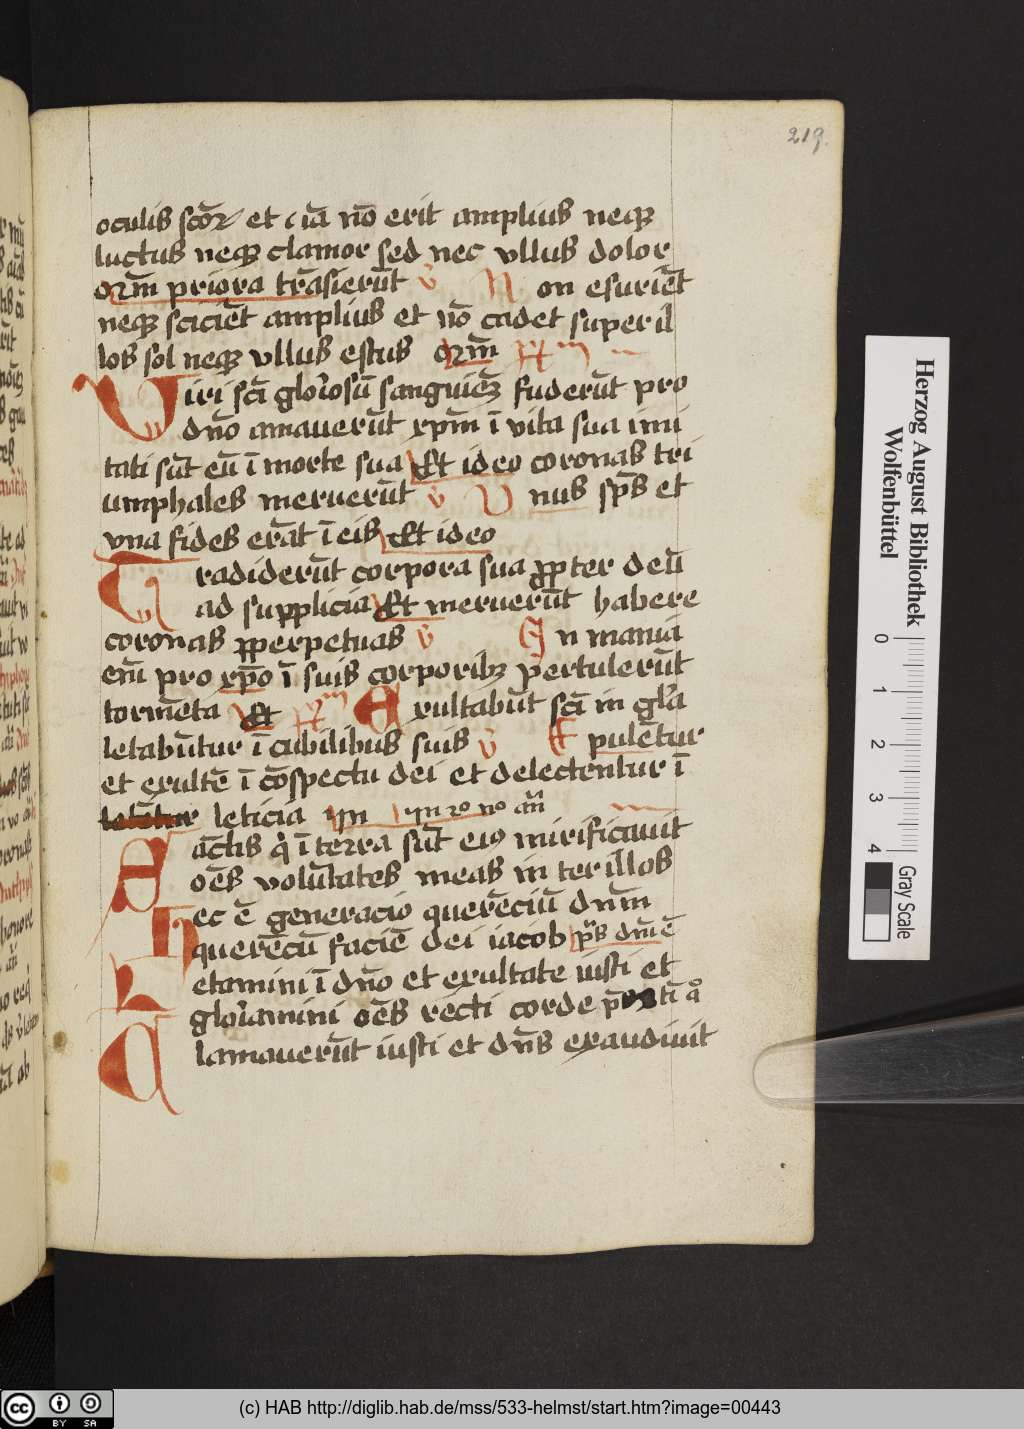 219.
oculis scōꝝ et iā nō erit amplius neqꝫ
luctus neqꝫ clamor sed nec vllus dolor
qm̄ priora trāsierūt v̄ Non esuriēt
neqꝫ sciciēt amplius et nō cadet super il
los sol neqꝫ vllus estus qm̄
Viri scī gloriosū sanguinē fuderūt pro
dn̄o amauerūt xp̄m ī vita sua imi
tati sūt eū ī morte sua Et ideo coronas tri
umphales meruerūt v̄ Vnus sp̄s et
vna fides erat ī eis Et ideo
Tradiderūt corpora sua ꝓpter deū
ad supplicia Et meruerūt habere
coronas ꝑpetuas v̄ In mania
eī pro xp̄o ī suis corporibꝫ pertulerūt
tormēta Et Exultabūt scī in glīa
letabūtur ī cubilibus suis v̄ Epulētur
et exultē ī cōspectu dei et delectentur ī
leticia
actis q̄ ī terra sūt eiꝰ mirificauit
oēs volūtates meas in ter illos
Hec ē generacio querēciū dn̄m
querēcū faciē dei iacob p̄s dm̄ ē
Letamini ī dn̄o et exultate iusti et
gloriamini oēs recti corde
Clamauerūt iusti et dn̄s exaudiuit
Herzog August Bibliothek
Wolfenbüttel
0 1 2 3 4
Gray Scale
cc BY SA
(c) HAB http://diglib.hab.de/mss/533-helmst/start.htm?image=00443